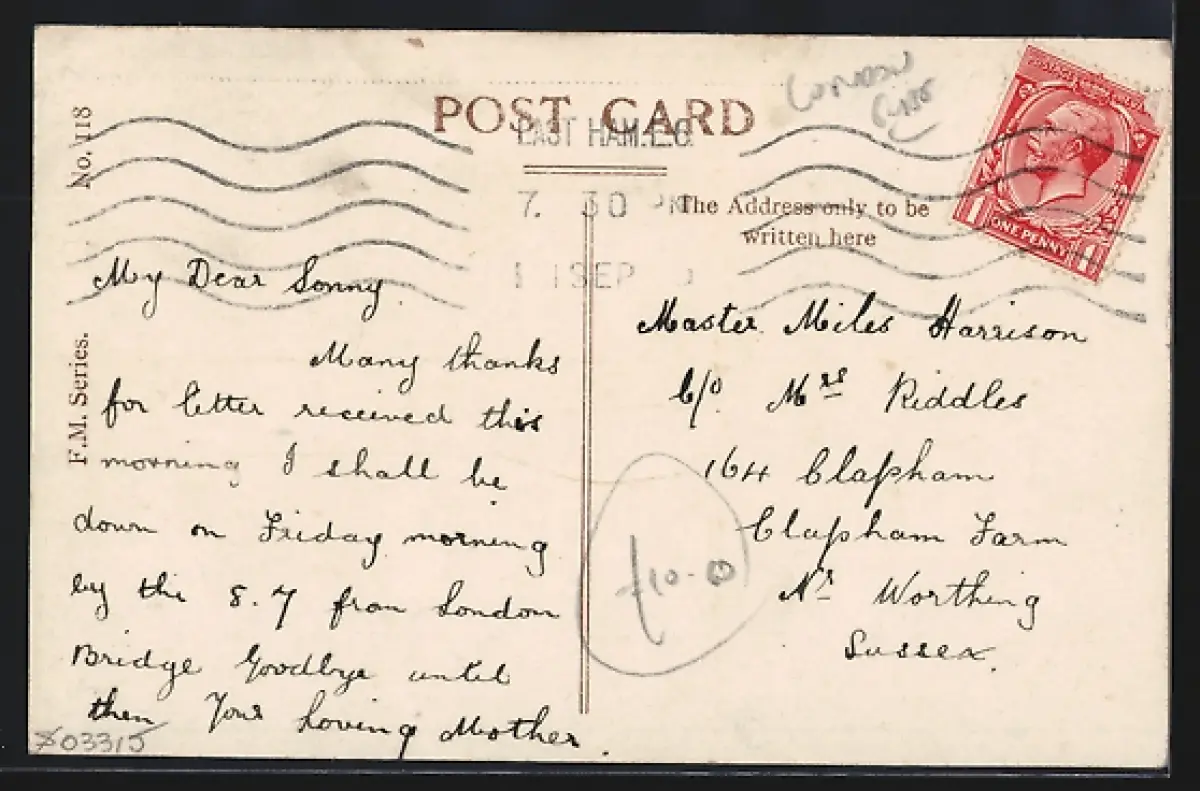 POST CARD
EAST HAM. E.6.
7. 30 PM
1 SEP
No. 118
F.M. Series.
The Address only to be
written here
ONE PENNY
1 1
My Dear Sonny
Many thanks
for letter received this
morning I shall be
down on Friday morning
by the 8.7 from London
Bridge Goodbye until
then Your Loving Mother.
Master. Miles Harrison
C/o. Mrs Riddles
164 Clapham
Clapham Farm
Nr Worthing
Sussex.
£10-00
X03315